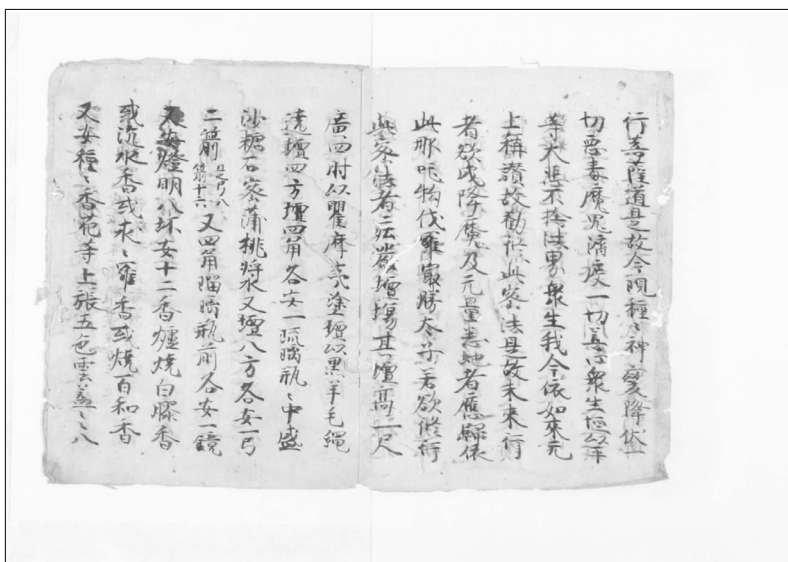 行菩薩道是故今現種〻神變降伏一
切惡毒魔鬼済度一切善心衆生恒以平
等大悲不捨法界衆生我今依如來元
上稱讃故勸修此密法是故未來行
者欲成降魔及元量悉地者應歸依
此那吒物伐羅宼勝太子若欲修行
此密法者二法嚴壇場其壇高一尺
廣四肘以瞿摩夷塗壇以黒羊毛繩
遶壇四方壇四角各安一瑠璃瓶〻中盛
沙糖石蜜蒲桃漿又壇八方各安一弓
二箭 是弓八箭十六 又四角瑠璃瓶前各安一鏡
又安燈明八坏安十二香爐燒白膠香
或沉水香或求〻羅香或燒百和香
又安種〻香花等上張五色雲蓋〻八